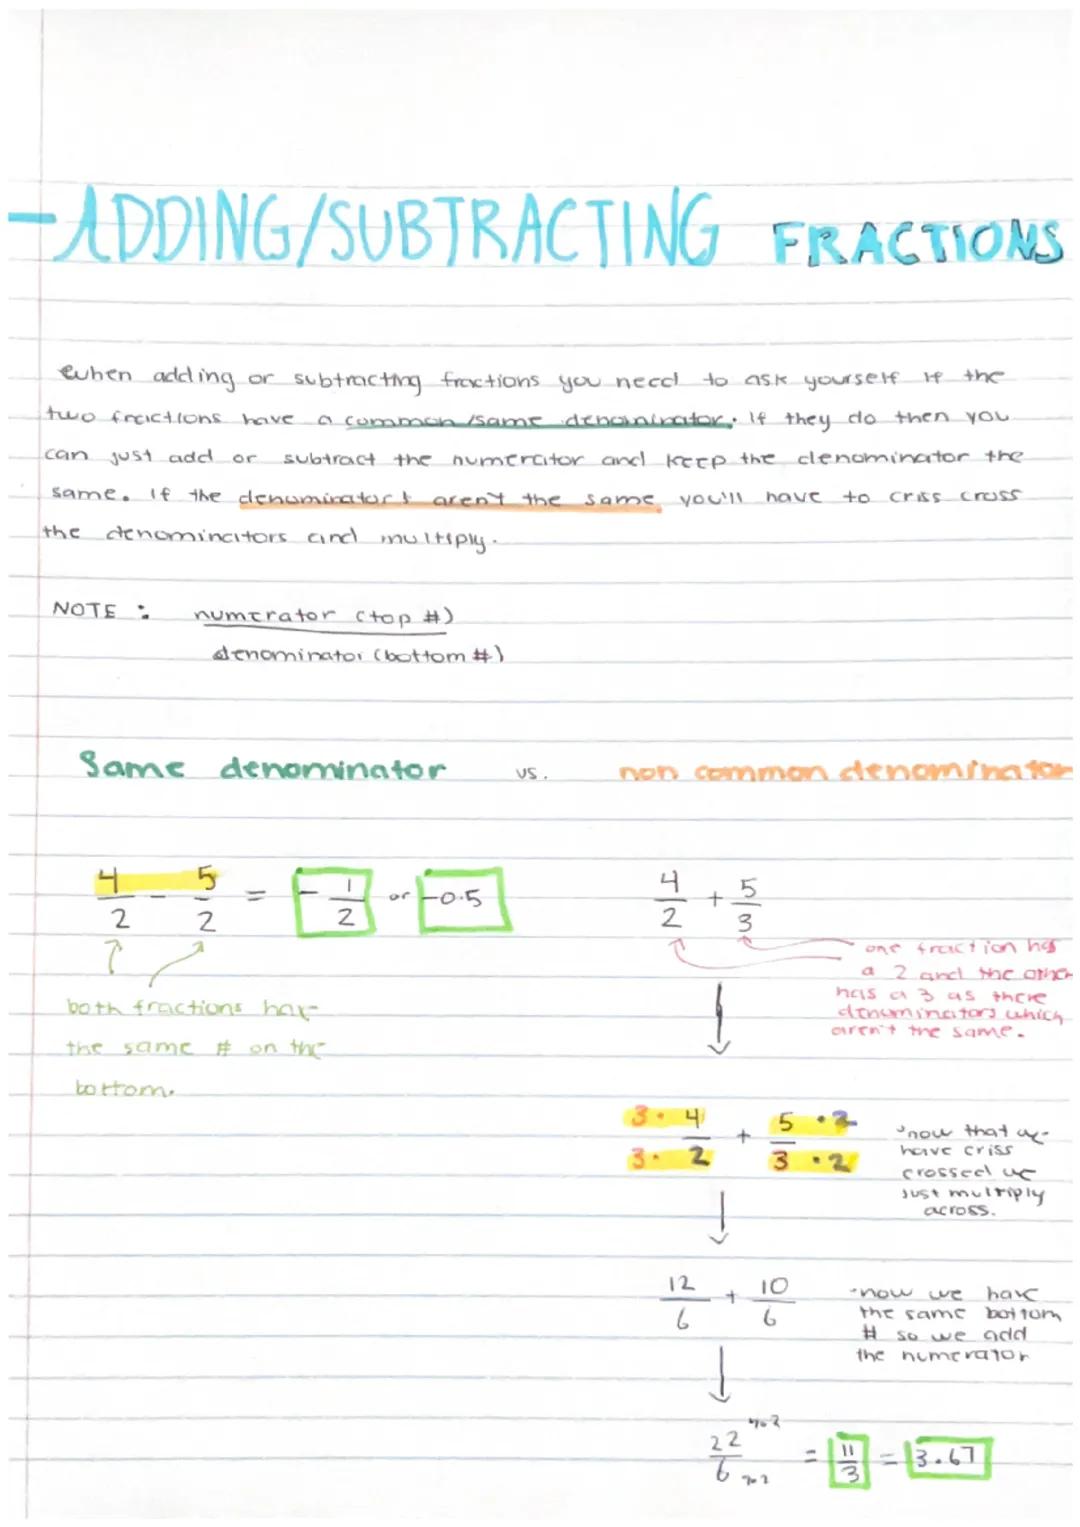 -ADDING/SUBTRACTING FRACTIONS
when adding or subtracting fractions you need to ask yourself if the
two fractions have a common/same denominator. If they do then you
can just add or subtract the numerator and keep the denominator the
same. If the denominators aren't the same you'll have to criss cross
the denominators and multiply.
NOTE : numerator (top #)
denominator (bottom #)
Same denominator vs. non common denominator
4/2 - 5/2 = -1/2 or -0.5
both fractions have
the same # on the
bottom.
4/2 + 5/3
one fraction has
a 2 and the other
has a 3 as there
denominators which
aren't the same.
3·4/3·2 + 5·2/3·2
now that we
have criss
crossed we
just multiply
across.
12/6 + 10/6
·now we have
the same bottom
# so we add
the numerator
22/6 = 11/3 = 3.67